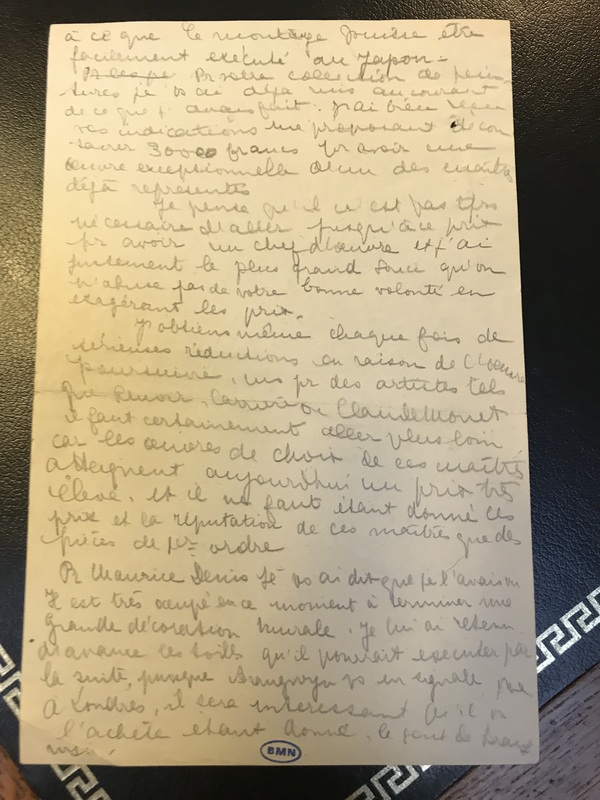 à ce que le montage puisse être
facilement exécuté au Japon -
Pr votre collection de pein-
tures je vs ai déjà mis au courant
de ce que j'avais fait. J'ai bien reçu
vos indications me proposant de con
sacrer 30000 francs pr avoir une
œuvre exceptionnelle d'un des maîtres
déjà représentés
Je pense qu'il n'est pas tjrs
nécessaire d'aller jusqu'à ce prix
pr avoir un chef d'œuvre et j'ai
justement le plus grand souci qu'on
n'abuse pas de votre bonne volonté en
exagérant les prix.
J'obtiens même chaque fois de
sérieuses réductions en raison de l'œuvre
poursuivie, mais pr des artistes tels
que Renoir, Carrière ou Claude Monet
il faut certainement aller plus loin
car les œuvres de choix de ces maîtres
atteignent aujourd'hui un prix très
élevé. et il ne faut étant donné ces
prix et la réputation de ces maîtres que des
pièces de 1er ordre
Pr Maurice Denis Je vs ai dit que je l'avais vu
Il est très occupé en ce moment à terminer une
grande décoration murale. Je lui ai retenu
d'avance les toiles qu'il pourrait exécuter par
la suite, puisque Brangwyn vs en signale une
à Londres, il sera intéressant qu'il vs
l'achète étant donné le gout de
BMN